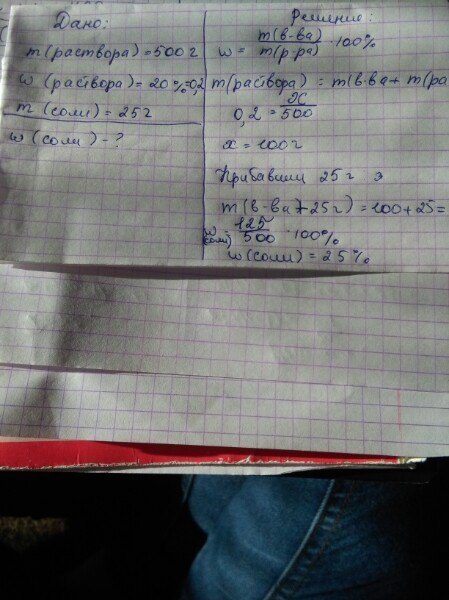 Дано:
m(раствора) = 500 г
w (раствора) = 20% = 0,2
m (соли) = 25 г
w (соли) - ?
Решение:
w = m(в-ва) / m(р-ра) · 100%
m(раствора) = m(в-ва + m(ра
0,2 = x / 500
x = 100 г
Прибавили 25 г э
m(в-ва + 25 г) = 100 + 25 =
w (соли) = 125 / 500 · 100%
w (соли) = 25%